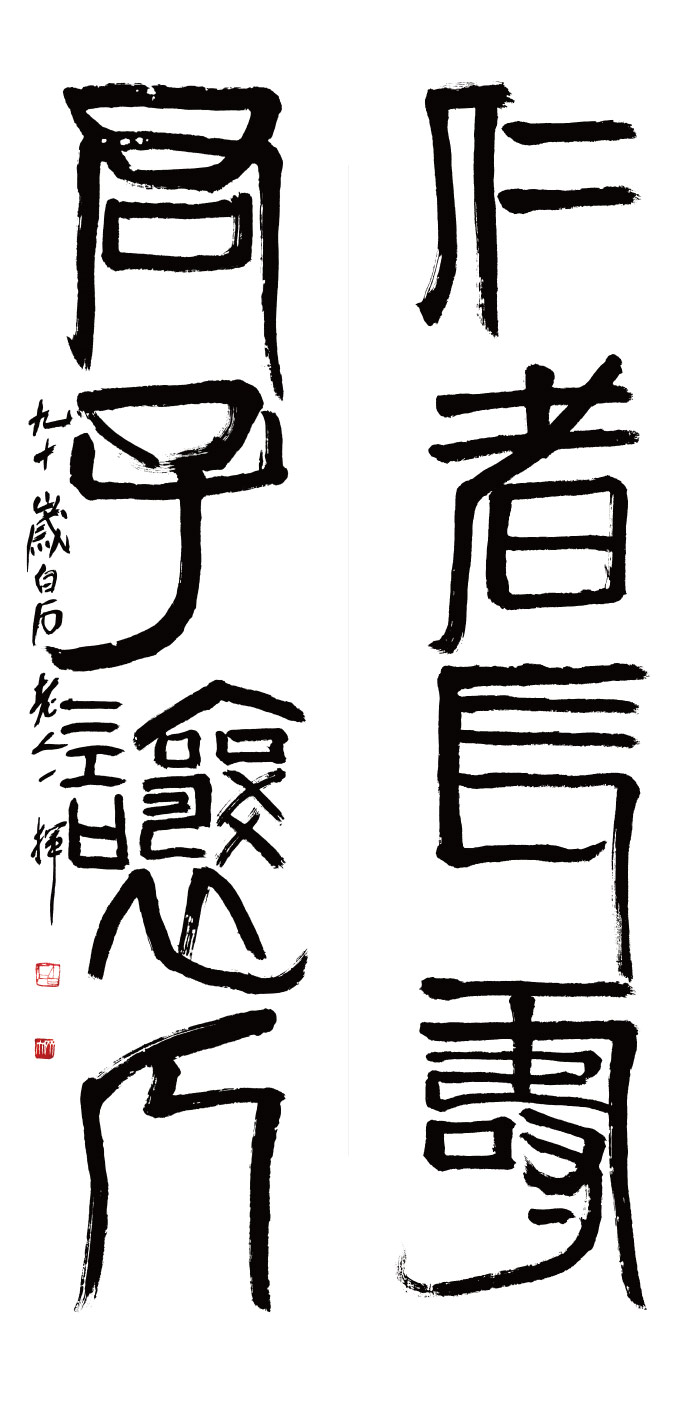 仁者長壽
君子人
九十歲白石老人揮